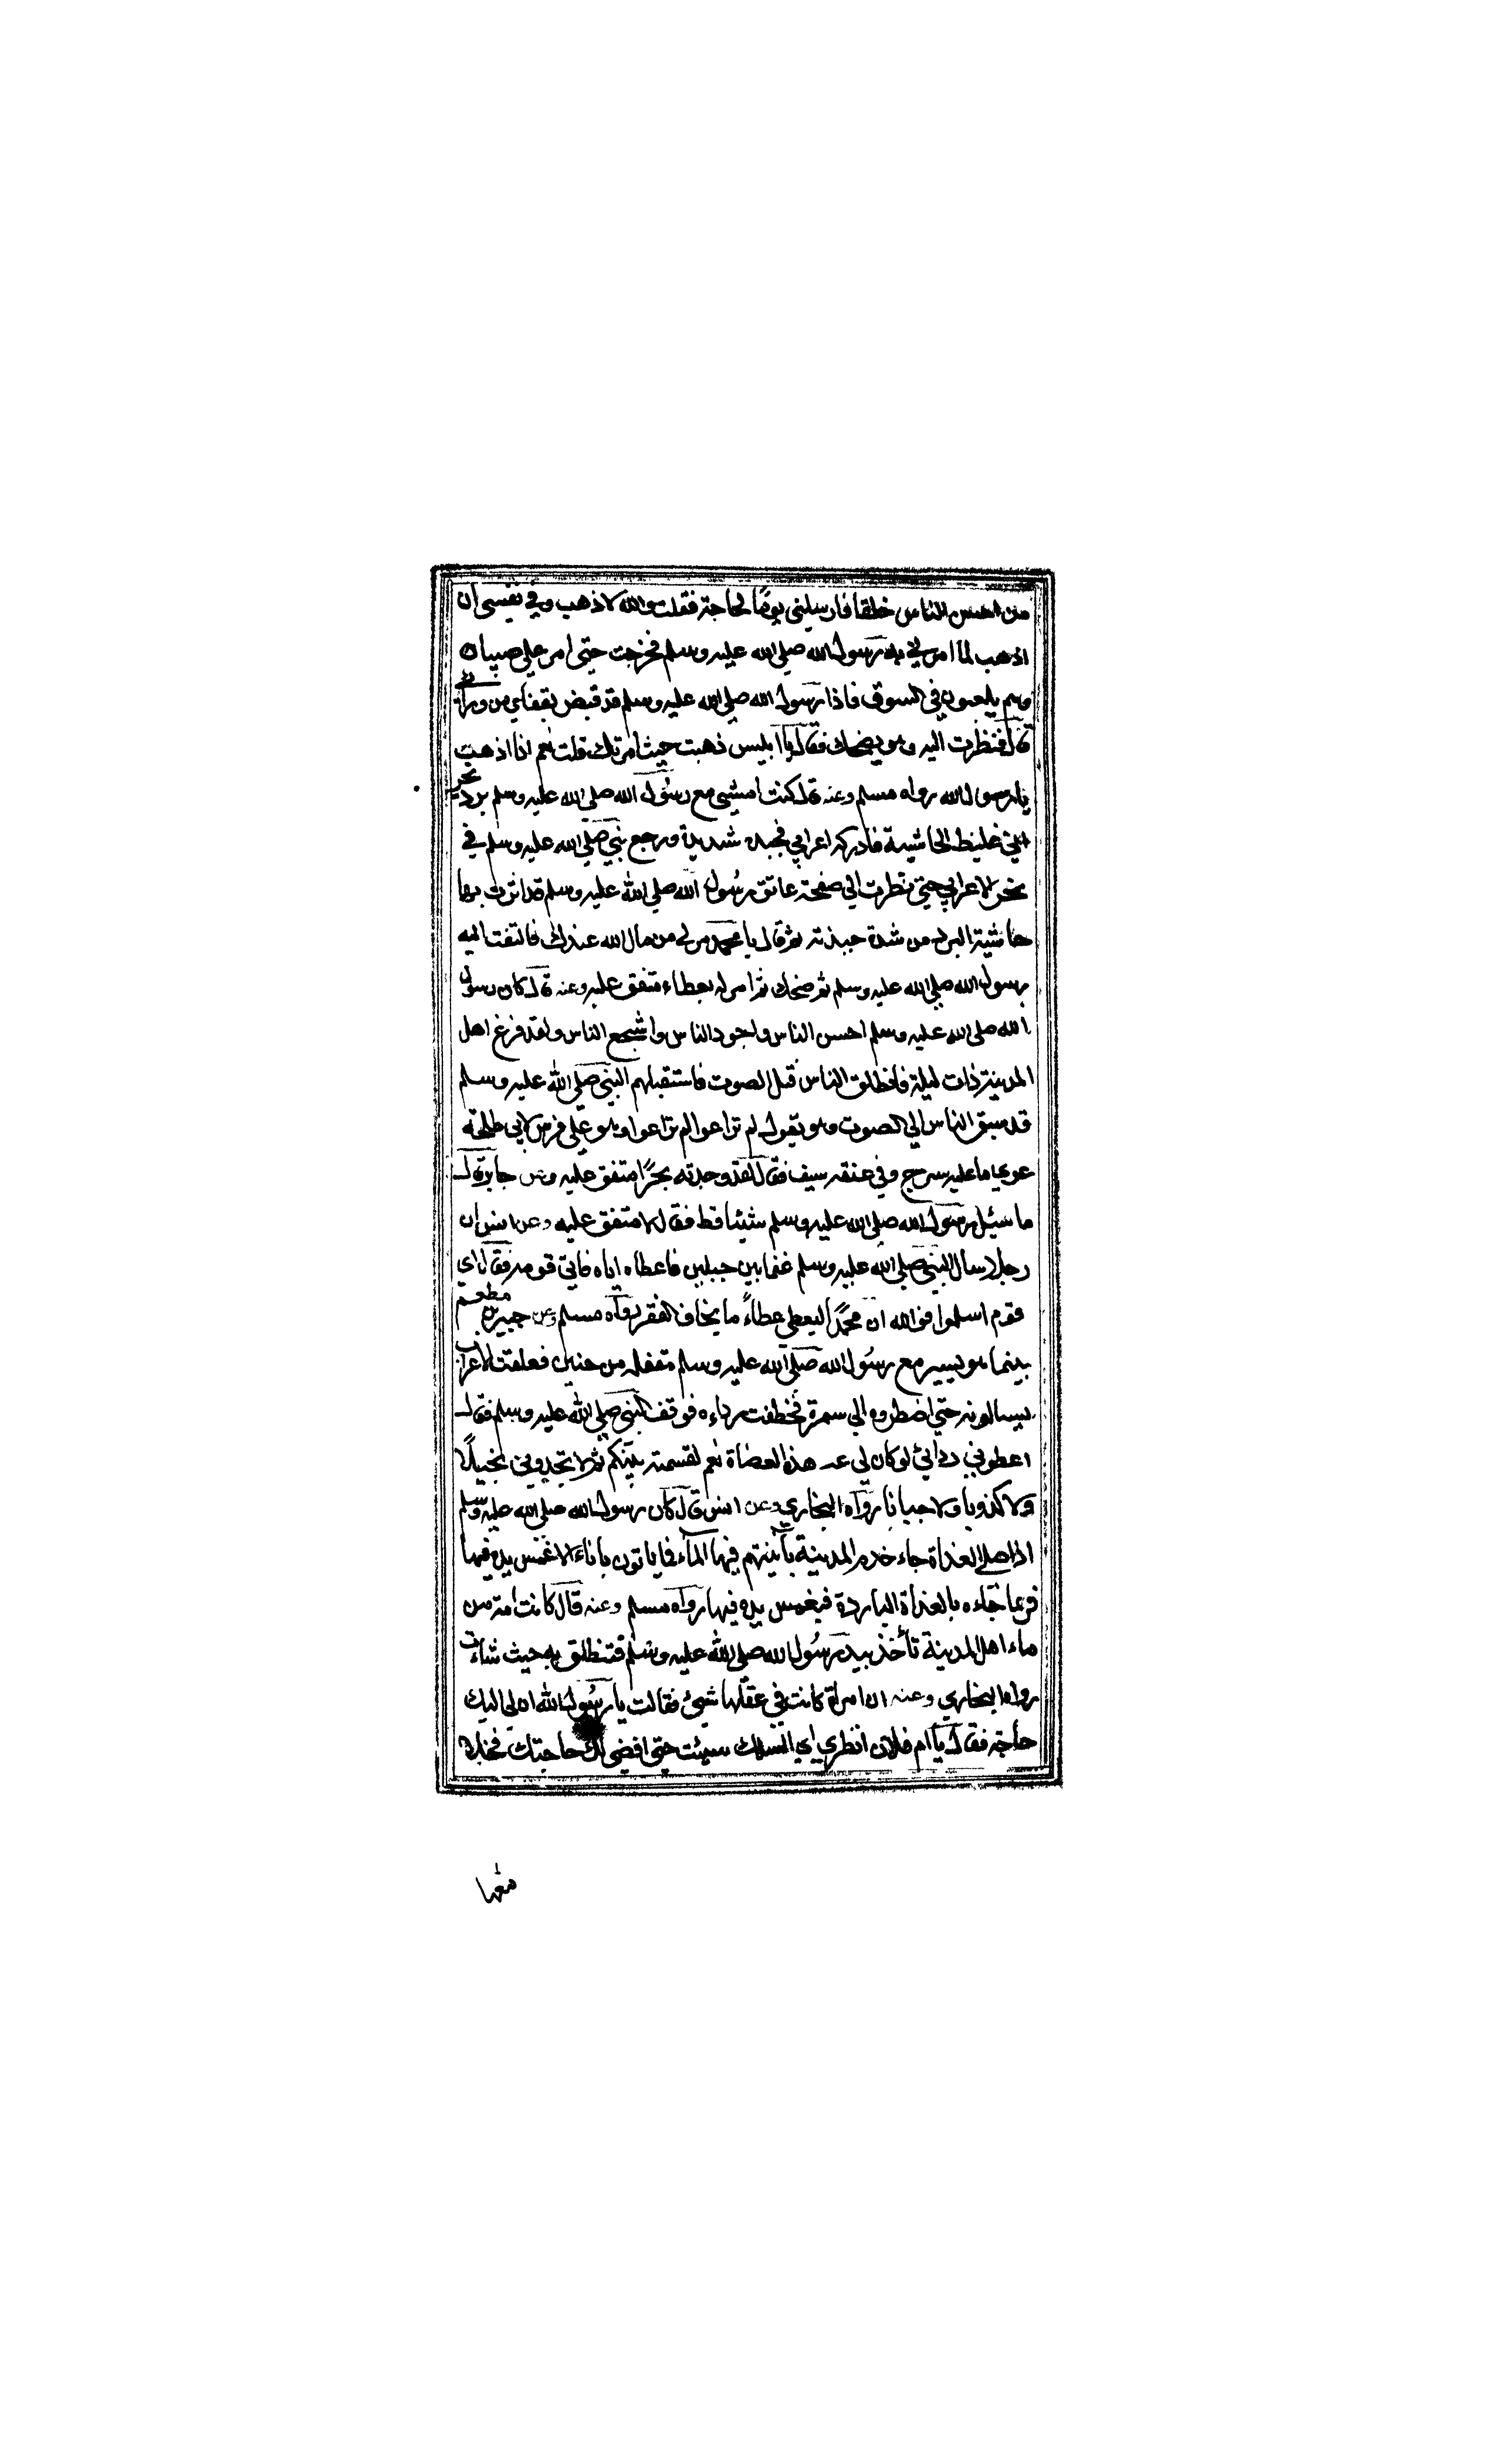 من احسن الناس خلقا فارسلني يومًا لحاجة فقلت والله لا اذهب وفي نفسي ان
اذهب لما امرني به رسول الله صلى الله عليه وسلم فخرجت حتى امر على صبيان
وهم يلعبون في السوق فاذا رسول الله صلى الله عليه وسلم قد قبض بقفاي من ورائي
قال فنظرت اليه وهو يضحك فقال يا ذهبت حيث امرتك قلت نعم انا اذهب
يا رسول الله رواه مسلم وعنه قال كنت امشي مع رسول الله صلى الله عليه وسلم برد نجراني
غليظ الحاشية فادركه اعرابي فجبذه شديدة ورجع نبي صلى الله عليه وسلم في
نحر الاعرابي حتى نظرت الي صفحة عاتق رسول الله صلي الله عليه وسلم قد اثرت بها
حاشية البرد من شدة جبذته ثم قال يا محمد مر لي من مال الله عندك فالتفت اليه
رسول الله صلي الله عليه وسلم ثم ضحك ثم امر له بعطاء متفق عليه وعنه قال كان رسول
الله صلى الله عليه وسلم احسن الناس واجود الناس واشجع الناس ولقد فزع اهل
المدينة ذات ليلة فانطلق الناس قبل الصوت فاستقبلهم النبي صلى الله عليه وسلم
قد سبق الناس الي الصوت وهو يقول لم تراعوا لم تراعوا وهو على فرس لابي طلحة
عري ما عليه سرج وفي عنقه سيف فقال لقد وجدته بحرًا متفق عليه وعن جابر قال
ما سئل رسول الله صلى الله عليه وسلم شيئا قط فقال لا متفق عليه وعن انس ان
رجلا سال النبي صلى الله عليه وسلم غنما بين جبلين فاعطاه اياه فاتى قومه فقال اي
قوم اسلموا فوالله ان محمدًا ليعطي عطاءً ما يخاف الفقر رواه مسلم وعن جبير بن مطعم
بينما هو يسير مع رسول الله صلى الله عليه وسلم مقفله من حنين فعلقت الاعراب
يسالونه حتي اضطروه الي سمرة فخطفت رداءه فوقف النبي صلي الله عليه وسلم فقال
اعطوني ردائي لو كان لي عدد هذه العضاة نعم لقسمته بينكم ثم لا تجدوني بخيلًا
ولا كذوبا ولا جبانا رواه البخاري وعن انس قال كان رسول الله صلى الله عليه وسلم
اذا صلى الغداة جاء خدم المدينة بآنيتهم فيها المآء فما ياتون باناء الا غمس يده فيها
فربما جاءه بالغداة الباردة فيغمس يده فيها رواه مسلم وعنه قال كانت امة من
ماء اهل المدينة تأخذ بيد رسول الله صلى الله عليه وسلم فتنطلق به حيث شاءت
رواه البخاري وعنه ان امراة كانت في عقلها شيئ فقالت يا رسول الله ان لي اليك
حاجة فقال يا ام فلان انظري اي السكك شيئت حتى اقضي لك حاجتك فخلا
معها